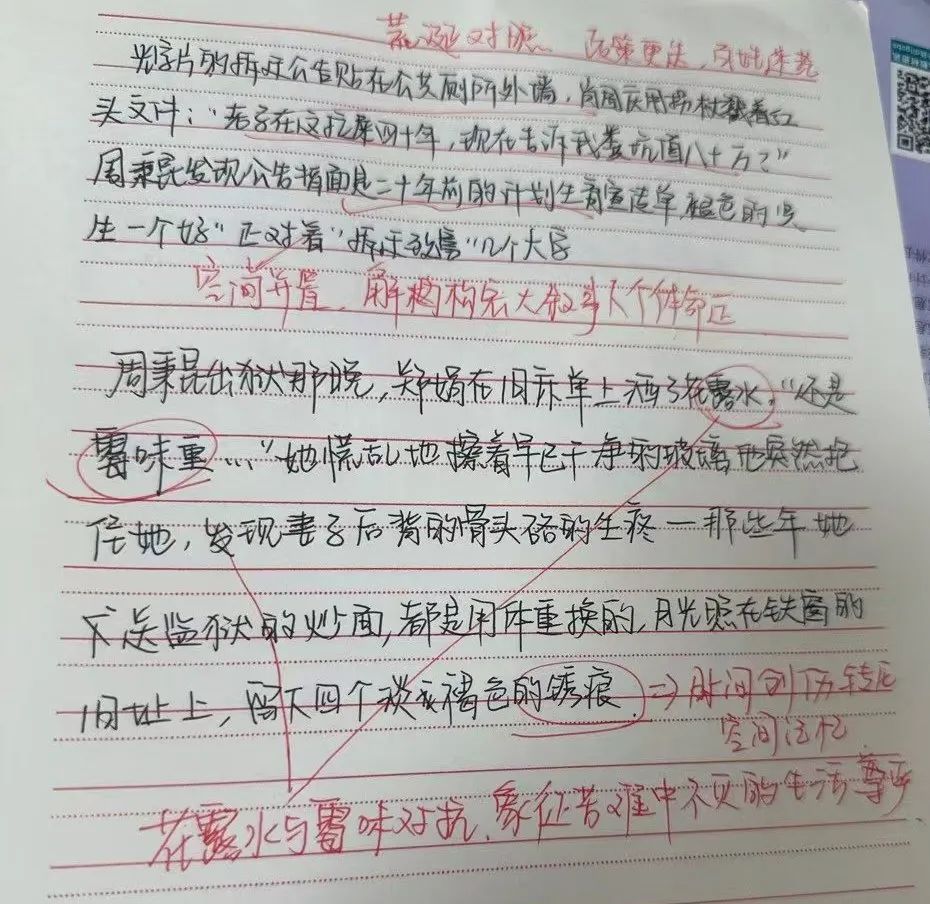 荒诞对照 政策更迭,
光字片的拆迁公告贴在公共厕所外墙,肖国庆用拐杖戳着红
头文件:“老子在这拉屎四十年,现在告诉我粪坑值八十万?”
周秉昆发现公告背面是二十年前的计划生育宣传单,褪色的“只
生一个好”正对着“拆迁致富”几个大字
空间并置,解构宏大叙事下个体命运
周秉昆出狱那晚,郑娟在旧床单上洒了花露水。“还是
霉味重……”她慌乱地擦着早已干净的玻璃,他突然抱
住她,发现妻子后背的骨头硌的生疼—那些年她
送监狱的炒面,都是用体重换的,月光照在铁窗的
旧址上,留下四个淡褐色的锈痕 ⇒时间创伤转化
空间记忆
花露水与霉味对抗,象征苦难中不灭的生活尊严